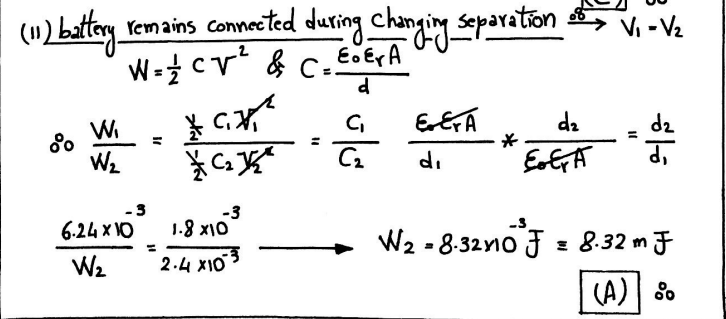 (11) battery remains connected during changing separation ∴ ⟹ V₁ = V₂
W = ½ C V² & C = ε₀εrA / d
∴ W₁ / W₂ = ½ C₁ V₁² / ½ C₂ V₂² = C₁ / C₂ ε₀εrA / d₁ * d₂ / ε₀εrA = d₂ / d₁
6.24 x 10⁻³ / W₂ = 1.8 x10⁻³ / 2.4 x10⁻³ ⟶ W₂ = 8.32x10⁻³ J = 8.32 m J
(A) ∴